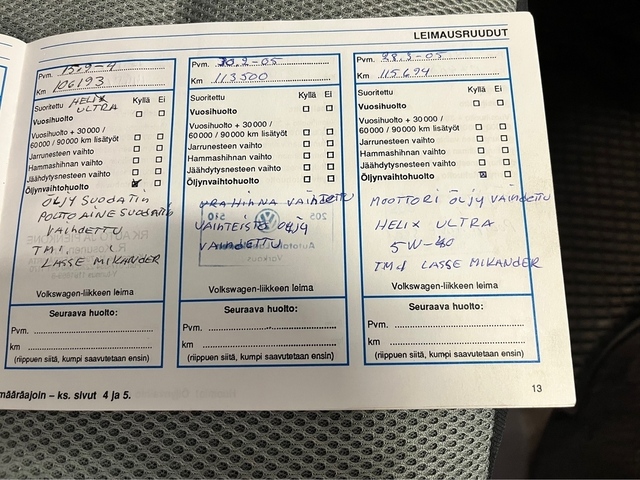 LEIMAUSRUUDUT
Pvm. 15.9-4
Km 106193
Suoritettu HELIX ULTRA
Kyllä Ei
Vuosihuolto
Vuosihuolto + 30 000 /
60 000 / 90 000 km lisätyöt
Jarrunesteen vaihto
Hammashihnan vaihto
Jäähdytysnesteen vaihto
Öljynvaihtohuolto
ÖLJY SUODATIN
POLTTOAINE SUODATIN
VAIHDETTU
TMI
LASSE MIKANDER
Volkswagen-liikkeen leima
Seuraava huolto:
Pvm.
km
(riippuen siitä, kumpi saavutetaan ensin)
Pvm. 2-05
Km 113500
Suoritettu Kyllä Ei
Vuosihuolto
Vuosihuolto + 30 000 /
60 000 / 90 000 km lisätyöt
Jarrunesteen vaihto
Hammashihnan vaihto
Jäähdytysnesteen vaihto
Öljynvaihtohuolto
VAIHDETTU
VAIHTEISTO ÖLJY
VAIHDETTU
Volkswagen-liikkeen leima
Seuraava huolto:
Pvm.
km
(riippuen siitä, kumpi saavutetaan ensin)
Pvm. 28.3-05
Km 115694
Suoritettu Kyllä Ei
Vuosihuolto
Vuosihuolto + 30 000 /
60 000 / 90 000 km lisätyöt
Jarrunesteen vaihto
Hammashihnan vaihto
Jäähdytysnesteen vaihto
Öljynvaihtohuolto
MOOTTORI ÖLJY VAIHDETTU
HELIX ULTRA
5W-40
TMI LASSE MIKANDER
Volkswagen-liikkeen leima
Seuraava huolto:
Pvm.
km
(riippuen siitä, kumpi saavutetaan ensin)
määräajoin – ks. sivut 4 ja 5.
13